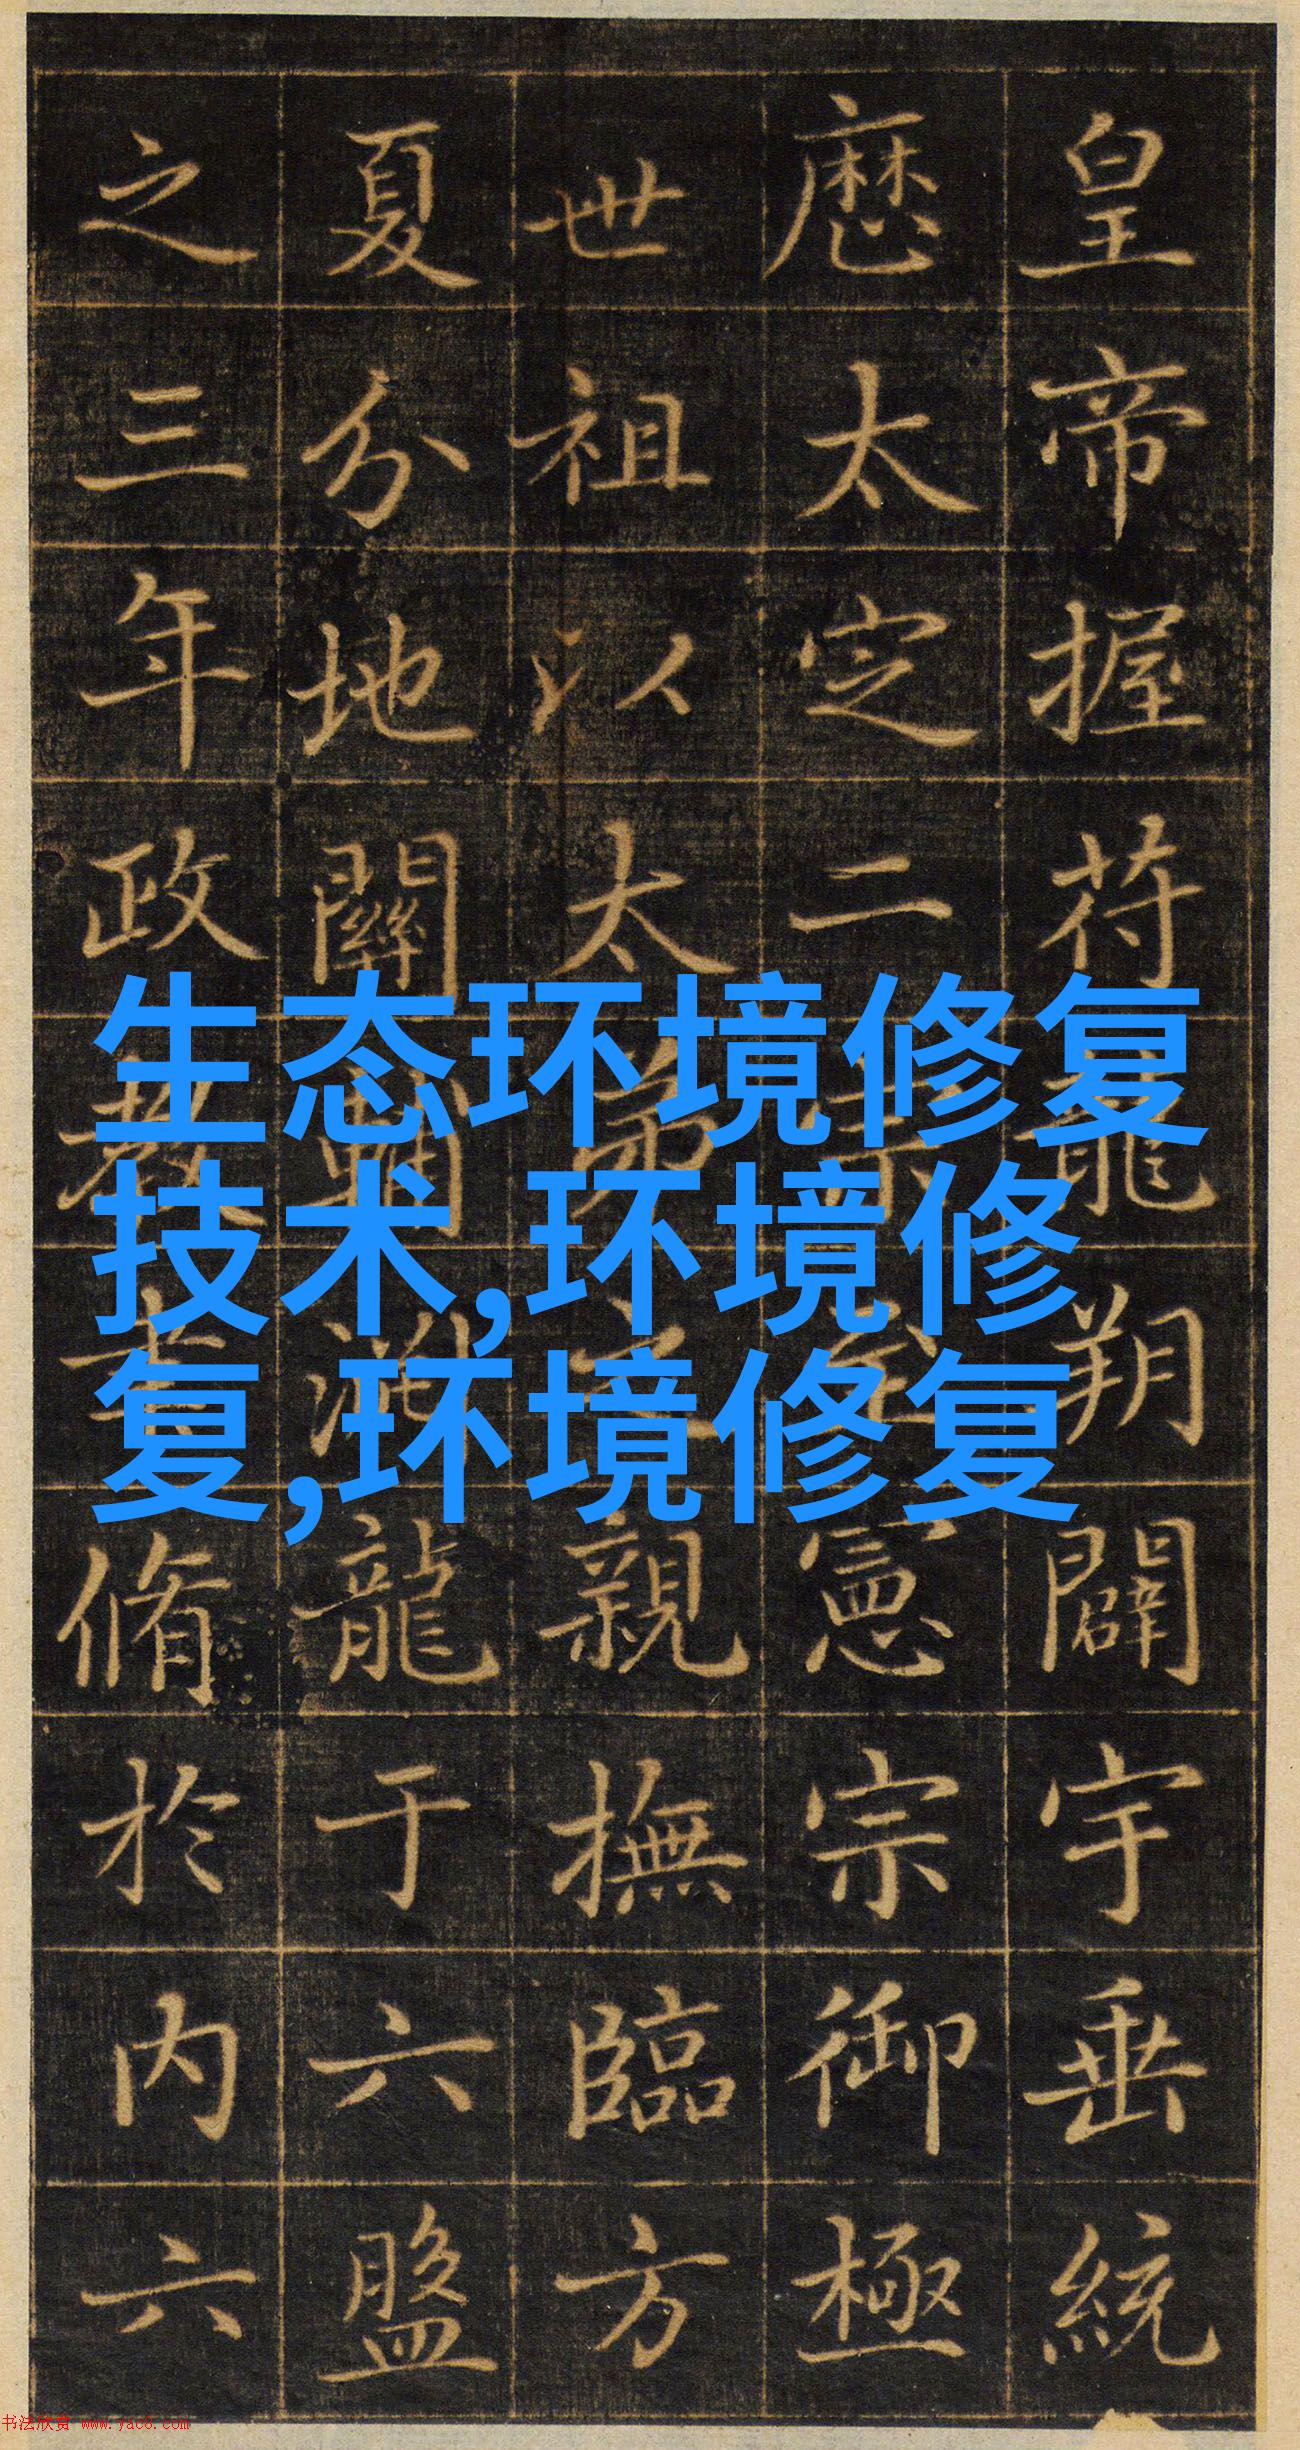 皇帝握符龍朔闢宇垂統
太定二憲宗御極
世祖以太弟之親撫臨方
夏分地關輔龍于六盤
之三年政教脩於內六
生态环境修复
技术,环境修
复,环境修复
书法欣赏 www.yac8.com